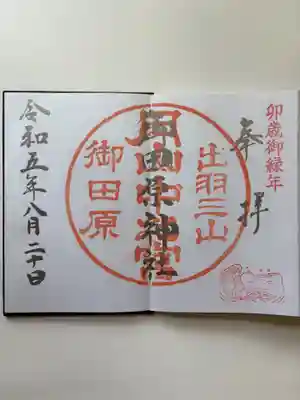 卯歳御縁年
奉拝
出羽三山
神社
御田原
令和五年八月二十日